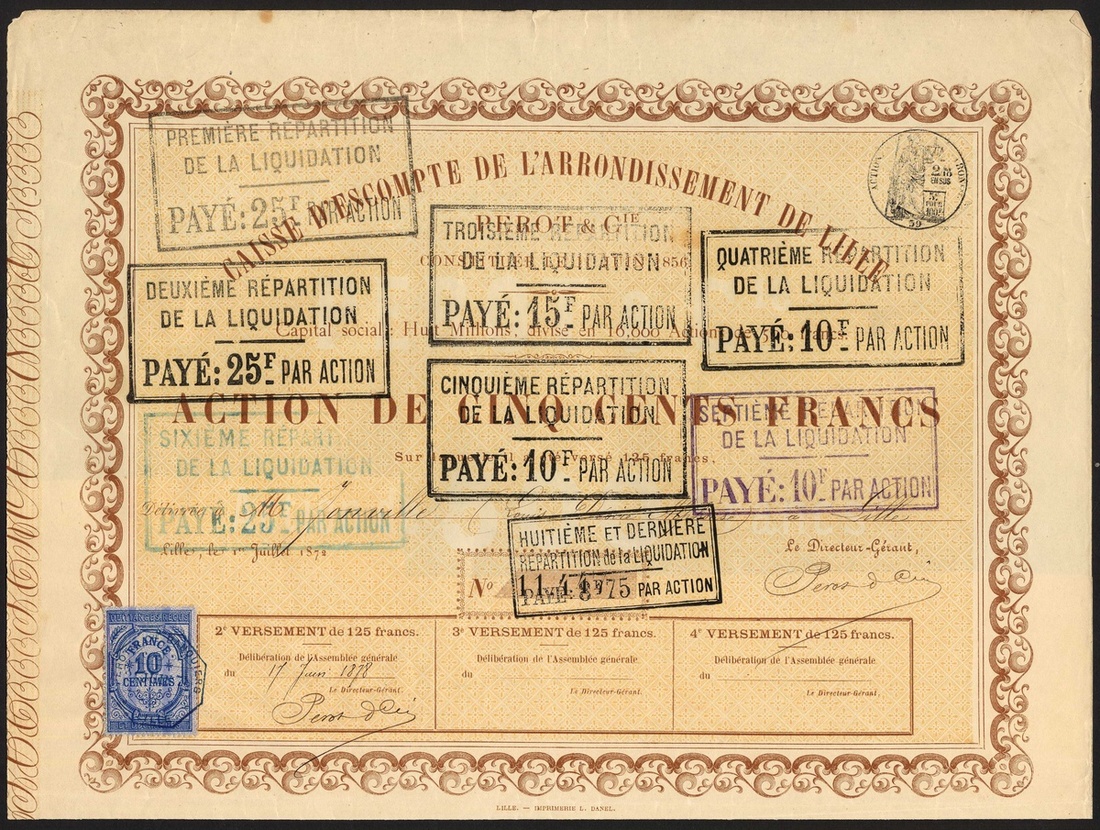 CAISSE D'ESCOMPTE DE L'ARRONDISSEMENT DE LILLE
PREMIÈRE RÉPARTITION
DE LA LIQUIDATION
PAYÉ: 25F PAR ACTION
ACTION
2/10
EN SUS
59
PEROT & CIE
TROISIÈME RÉPARTITION
DE LA LIQUIDATION
PAYÉ: 15F PAR ACTION
QUATRIÈME RÉPARTITION
DE LA LIQUIDATION
PAYÉ: 10F PAR ACTION
DEUXIÈME RÉPARTITION
DE LA LIQUIDATION
PAYÉ: 25F PAR ACTION
1856
Capital social: Huit Millions, divisé en 16,000 Actions de francs
ACTION DE CINQ CENTS FRANCS
CINQUIÈME RÉPARTITION
DE LA LIQUIDATION
PAYÉ: 10F PAR ACTION
SEPTIÈME RÉPARTITION
DE LA LIQUIDATION
PAYÉ: 10F PAR ACTION
SIXIÈME RÉPARTITION
DE LA LIQUIDATION
PAYÉ: 25F PAR ACTION
Sur versé 125 francs.
Délivrée à M Jonville Louis à Lille
Lille, le 1er Juillet 1872
Le Directeur-Gérant,
Perot & Cie
HUITIÈME ET DERNIÈRE
RÉPARTITION de la LIQUIDATION
PAYÉ: 3F75 PAR ACTION
No
2e VERSEMENT de 125 francs.
Délibération de l'Assemblée générale
du 17 Juin 1878
Le Directeur-Gérant.
Perot & Cie
3e VERSEMENT de 125 francs.
Délibération de l'Assemblée générale
du
Le Directeur-Gérant.
4e VERSEMENT de 125 francs.
Délibération de l'Assemblée générale
du
Le Directeur-Gérant.
FRANCE
10
CENTIMES
LILLE. — IMPRIMERIE L. DANEL.